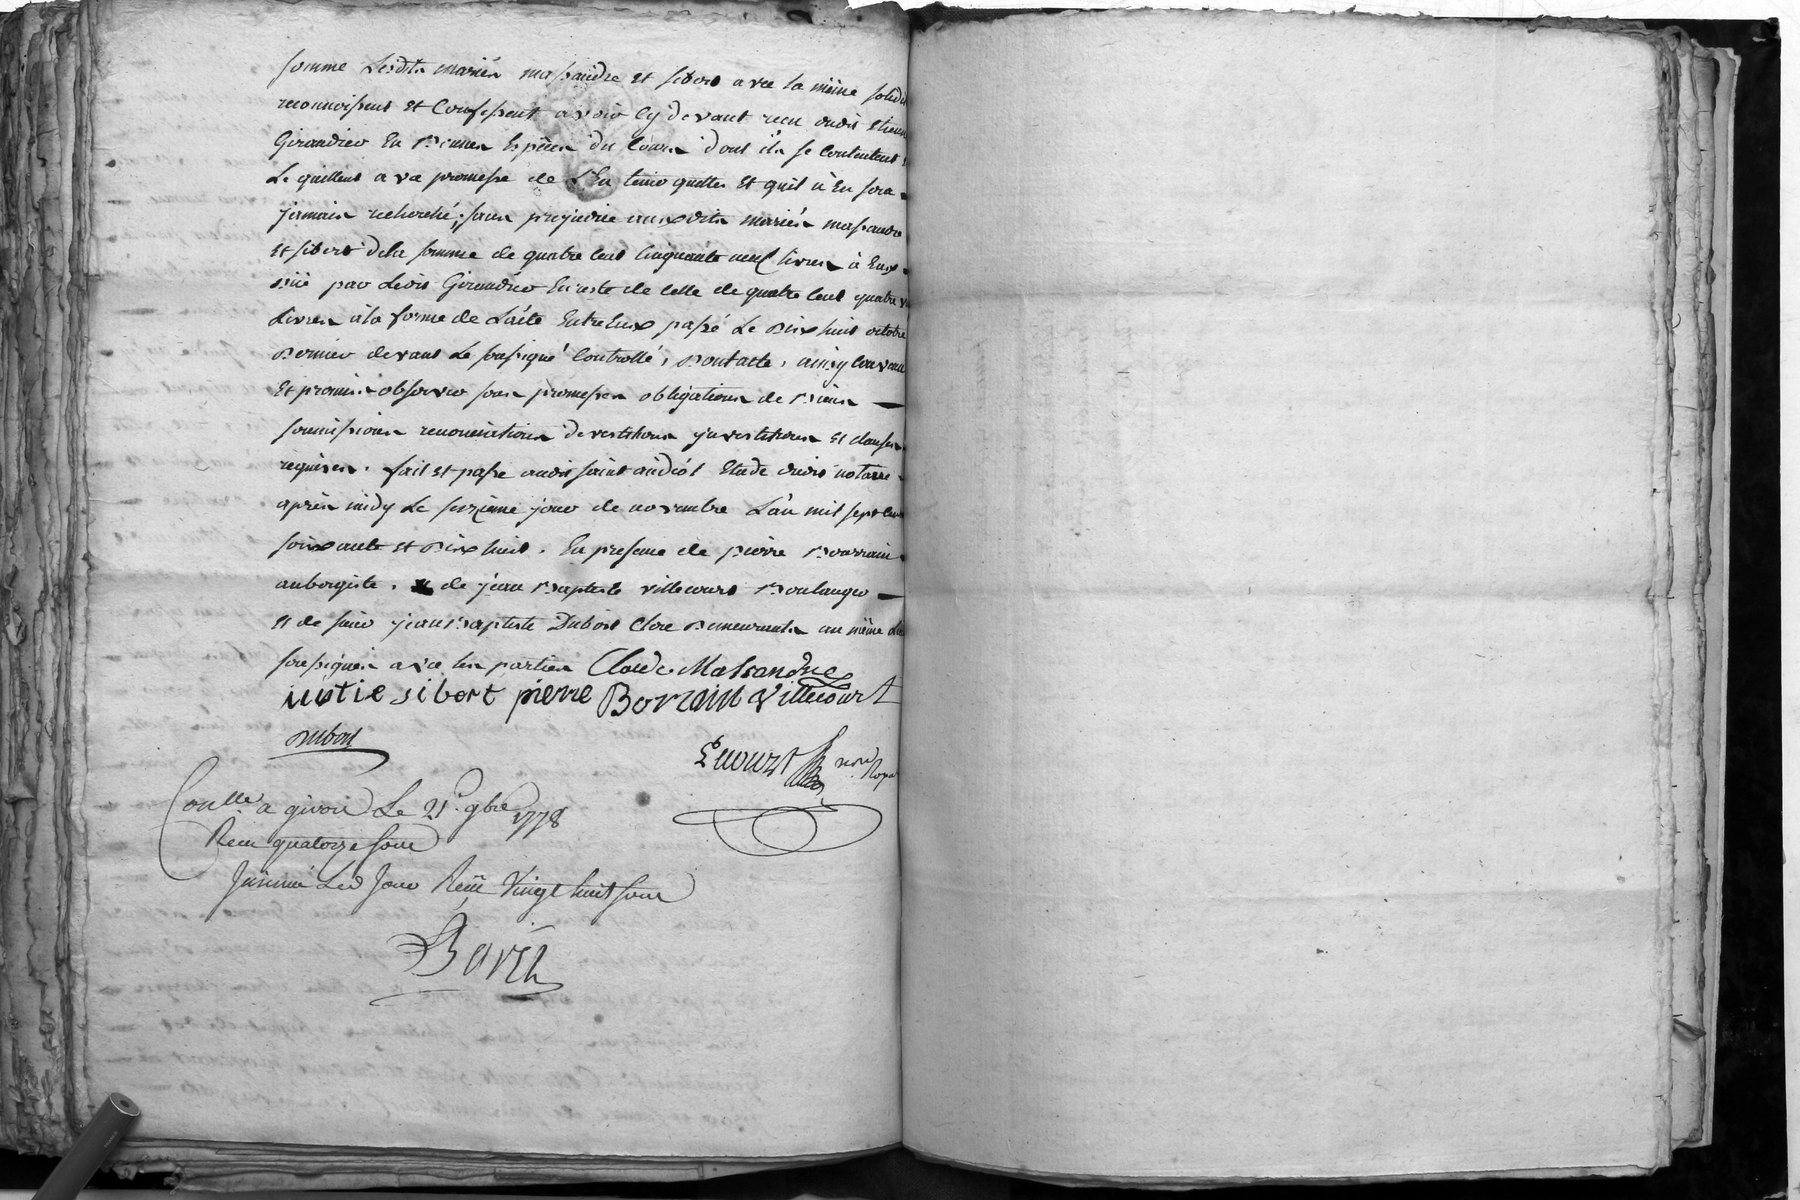 somme Lesdits mariés massaudre et sibert avec la même solidit
reconnoissent et Confessent avoir Cy devant reçu dudit Etienne
Giraudier En Bonnes Espèces du Cours dont ils se Contentent
Le quittent avec promesse de L'En tenir quittes Et quil n'En sera
jamais recherché; sans prejudice auxdits mariés massaudre
et sibert de la somme de quatre Cent Cinquante neuf livres à Eux
düe par Ledit Giraudier En reste de Celle de quatre Cent quatre v
Livres à la forme de L'acte Entreux passé Le Dix huit octobre
Dernier devant Le soussigné Controllé, Dont acte, ainsy Convenu
Et promis observer sous promesses obligations de Biens
soumissions renonciations devestitions investitions Et clauses
requises. fait Et passé audit saint andéol Etude dudit notaire
après midy Le seizieme jour de novembre L'an mil sept Cent
soixante Et Dix huit. En presence de pierre Bourrain
aubergiste, de jean Baptiste villecourt Boulanger
Et de sieur jean Baptiste Dubost Clerc Demeurants au même lieu
soussignés avec les parties Claude Massandre
iustie sibert pierre Borrain Villecourt
Dubost
not. Royal
Conllé a givors Le 21e. 9bre 1778
Reçu quatorze sous
Insinué Led Jour Reçu Vingt huit sous